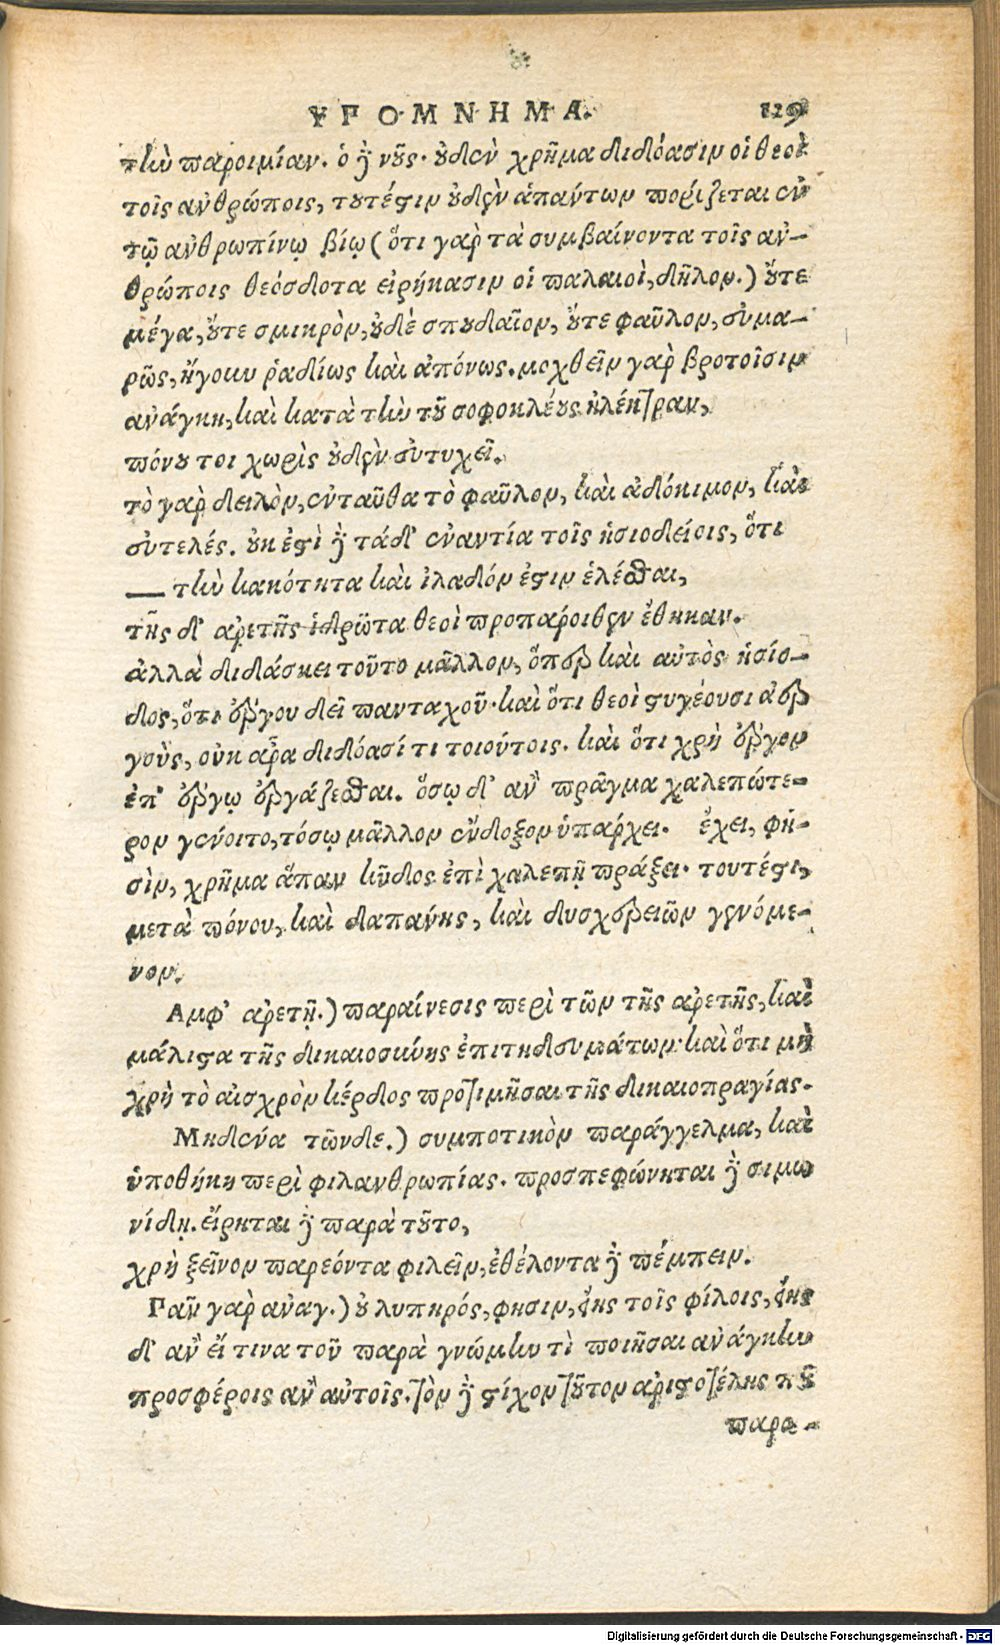 ΥΠΟΜΝΗΜΑ. 119
τὴν παροιμίαν. ὁ δὲ νοῦς. οὐδὲν χρῆμα διδόασιν οἱ θεοὶ
τοῖς ἀνθρώποις, τουτέστιν οὐδὲν ἁπάντων πορίζεται ἐν
τῷ ἀνθρωπίνῳ βίῳ (ὅτι γὰρ τὰ συμβαίνοντα τοῖς ἀν-
θρώποις θεόσδοτα εἰρήκασιν οἱ παλαιοὶ, δῆλον.) οὔτε
μέγα, οὔτε σμικρὸν, οὐδὲ σπουδαῖον, οὔτε φαῦλον, εὐμα-
ρῶς, ἤγουν ῥαδίως καὶ ἀπόνως. μοχθεῖν γὰρ βροτοῖσιν
ἀνάγκη, καὶ κατὰ τὴν τοῦ σοφοκλέους ἠλέκτραν,
πόνου τοι χωρὶς οὐδὲν εὐτυχεῖ.
τὸ γὰρ δειλὸν, ἐνταῦθα τὸ φαῦλον, καὶ ἀδόκιμον, καὶ
εὐτελές. οὐκ ἐστὶ δὲ τάδ' ἐναντία τοῖς ἡσιοδείοις, ὅτι
— τὴν κακότητα καὶ ἰλαδόν ἐστιν ἑλέσθαι,
τῆς δ' ἀρετῆς ἱδρῶτα θεοὶ προπάροιθεν ἔθηκαν.
ἀλλὰ διδάσκει τοῦτο μᾶλλον, ὅπερ καὶ αὐτὸς ἡσίο-
δος, ὅτι ἔργου δεῖ πανταχοῦ. καὶ ὅτι θεοὶ στυγέουσι ἀερ
γοὺς, οὐκ ἄρα διδόασί τι τοιούτοις. καὶ ὅτι χρὴ ἔργον
ἐπ' ἔργῳ ἐργάζεσθαι. ὅσῳ δ' ἂν πρᾶγμα χαλεπώτε-
ρον γένοιτο, τόσῳ μᾶλλον ἔνδοξον ὑπάρχει. ἔχει, φη-
σὶν, χρῆμα ἅπαν κῦδος ἐπὶ χαλεπῇ πράξει. τουτέστι,
μετὰ πόνου, καὶ δαπάνης, καὶ δυσχερειῶν γενόμε-
νον.
Αμφ' ἀρετῇ.) παραίνεσις περὶ τῶν τῆς ἀρετῆς, καὶ
μάλιστα τῆς δικαιοσύνης ἐπιτηδευμάτων. καὶ ὅτι μὴ
χρὴ τὸ αἰσχρὸν κέρδος προτιμῆσαι τῆς δικαιοπραγίας.
Μηδένα τῶνδε.) συμποτικὸν παράγγελμα, καὶ
ὑποθήκη περὶ φιλανθρωπίας. προσπεφώνηται δὲ σιμω
νίδῃ. εἴρηται δὲ παρὰ τοῦτο,
χρὴ ξεῖνον παρεόντα φιλεῖν, ἐθέλοντα δὲ πέμπειν.
Πᾶν γὰρ ἀναγ.) οὐ λυπηρός, φησιν, ἔσης τοῖς φίλοις, ἔσης
δ' ἂν εἴ τινα τοῦ παρὰ γνώμην τὶ ποιῆσαι ἀνάγκην
προσφέροις ἂν αὐτοῖς. τὸν δὲ στίχον τοῦτον ἀριστοτέλης που
παρα-
Digitalisierung gefördert durch die Deutsche Forschungsgemeinschaft - DFG